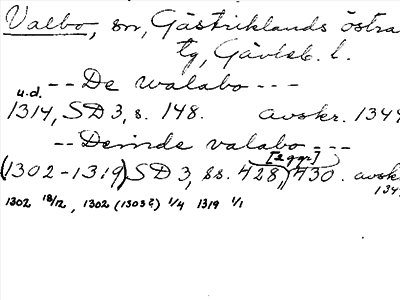 Valbo, sn, Gästriklands östra
tg, Gävleb. l.
-- De walabo ---
u.d.
1314, SD 3, s. 148. avskr. 1344
-- Deinde valabo ---
[2 ggr]
(1302-1319) SD 3, ss. 428, 430. avskr.
134
1302 18/12, 1302 (1303?) 1/4 1319 1/1